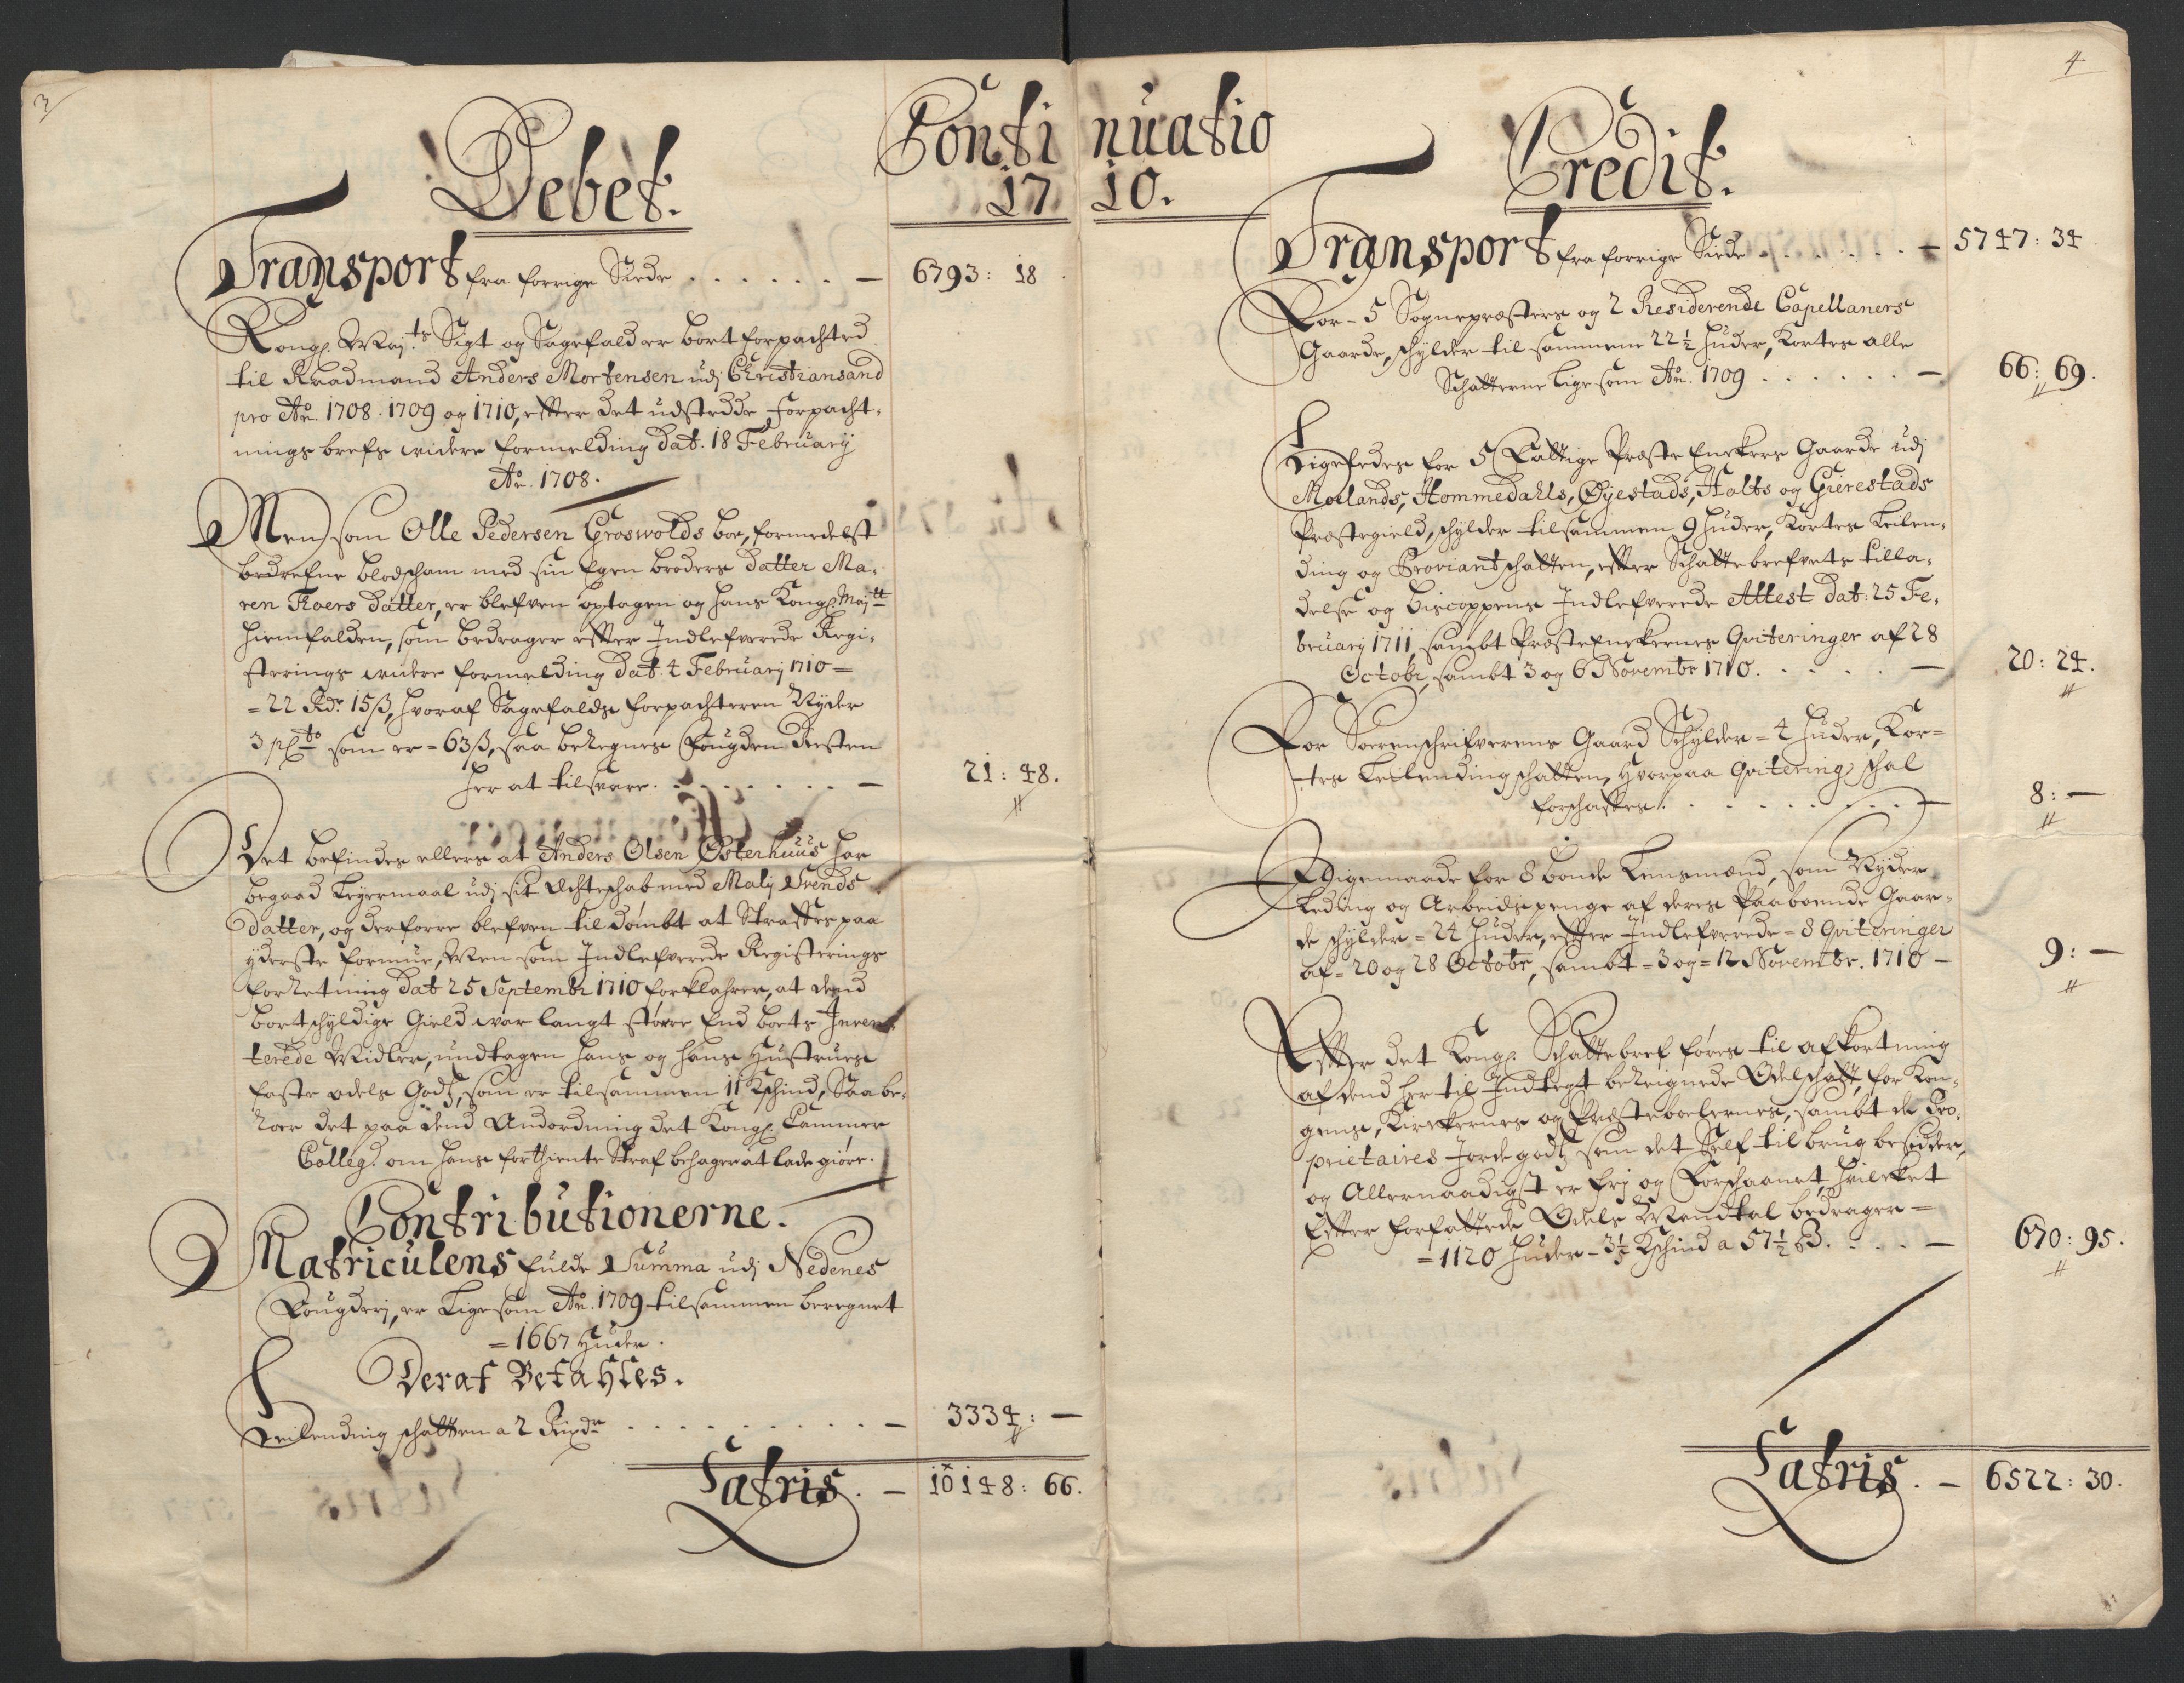 3
Debet.
Conti
17
Transport fra forrige Siide . . . . . . — 6793: 18
Kongl. May.ts Sigt og Sagefald er bortforpachted
til Raadmand Anders Mortensen udj Christiansand
pro Ao. 1708. 1709 og 1710, effter det udstedde Forpacht-
nings brefs videre formelding dat. 18 February
Ao. 1708.
Men som Olle Pedersen Groswolds boe, formedelst
bedrefne blodscham med sin Egen broders datter Ma-
ren Roers datter, er blefven optagen og hans Kongl. Maytt
hiemfalden, som bedrager effter Indlefverede Regi-
sterings videre formelding dat. 4 Februarj 1710 =
= 22 Rdr. 15ß, hvoraf Sagefalds forpachteren Nyder
3 pCto som er = 63ß, saa beregnes Fougden Resten
her at tilsvare. . . . . . . . — 21: 48.
Det befindes ellers at Anders Olsen Østerhuus har
begaad Leyermaal udj sit Echteschab med Malj Svends
datter, og derforre blefven tildømbt at Straffes paa
yderste formue, Men som Indlefverede Registerings
forretning dat 25 Septembr 1710 forklahrer, at dend
bortschyldige Gield war langt større End boets Inven-
terede Midler, undtagen hans og hans Hustrues
faste odels Godtz, som er tilsammen 11 Kschind, Saa be-
roer det paa dend Andordning det Kongl. Cammer
Colleg. om hans forthiente Straf behager at lade giøre.
Contributionerne.
Matriculens fulde Summa udj Nedenes
Fougderj, er Ligesom Ao. 1709 tilsammen beregnet
= 1667 Huder.
Deraf Betahles.
Leilending schatten a 2 Rixdr . . . . . . . . — 3334: —
Latris. — 10148: 66.
4
nuatio
10.
Credit.
Transport fra forrige Siide . . . . . . — 5747: 34
For - 5 Sognepræsters og 2 Residerende Capellaners
Gaarde, schylder til sammen 22 ½ huder, Kortes alle
Schatterne Ligesom Ao. 1709 . . . . . . — 66: 69.
Ligeledes for 5 Fattige Præste Enckers Gaarde udj
Moelands, Hommedahls, Øyestads, Holts og Gierestads
Præstegield, schylder tilsammen 9 huder, Kortes Leilen-
ding og Proviantschatten, effter Schattebrefvets tilla-
delse og Biscoppens Indlefverede Attest dat: 25 Fe-
bruarij 1711, sambt Præsteenckernes Qviteringer af 28
Octobr, sambt 3 og 6 Novembr 1710. . . . . — 20: 24.
For Sorenschrifverens Gaard Schylder = 4 huder, Kor-
tes Leilending schatten, Hvorpaa Qvitering schal
forschaffes. . . . . . . . . — 8: —
Ligemaade for 8 bonde Lensmænd, som Nyder
Leding og Arbeidspenge af deres Paaboende Gaar-
de schylder = 24 huder, effter Indlefverede = 8 Qviteringer
af = 20 og 28 Octobr, sambt = 3 og = 12 Novembr. 1710 — 9: —
Effter det Kongl. Schattebref føres til afkortning
af dend her til Indtegt beregnede Odelschatt, for Kon-
gens, Kirckernes og Præsteboelernes, sambt de Pro-
prietaires Jordegodtz som det Self til brug besidder,
og Allernaadigst er frj og Forschaanet, hvilcket
Effter forfattede Odels Mandtal bedrager =
= 1120 huder - 3½ Kschind a 57½ ß. . . . — 670: 95.
Latris. — 6522: 30.